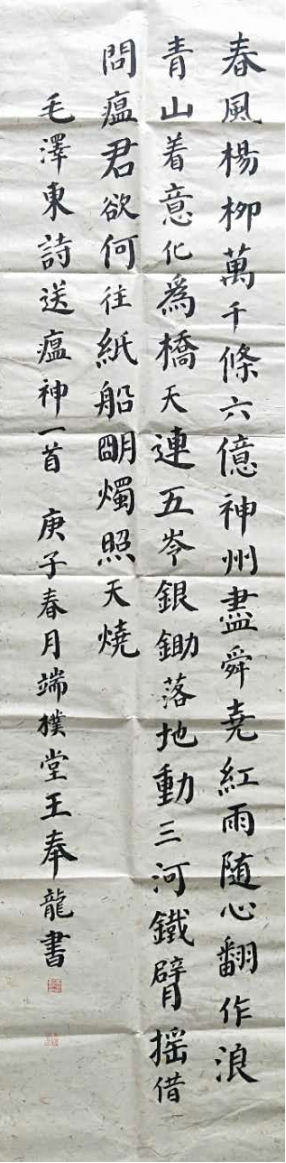 春風楊柳萬千條六億神州盡舜堯紅雨随心翻作浪
青山着意化為橋天連五岑銀鋤落地動三河鐵臂摇借
問瘟君欲何往紙船明燭照天燒
毛澤東詩送瘟神一首 庚子春月端樸堂王奉龍書